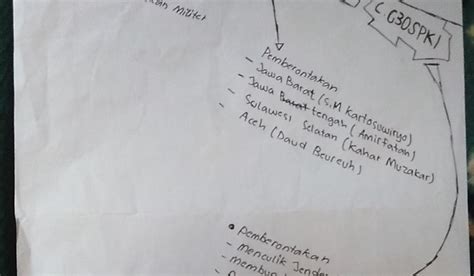 Militer
C G30SPKI
Pemberontakan
- Jawa Barat (S.M Kartosuwiryo)
- Jawa Barat tengah (Amir Fatah)
- Sulawesi Selatan (Kahar Muzakar)
Aceh (Daud Beureuh)
• Pemberontakan
- menculik Jende